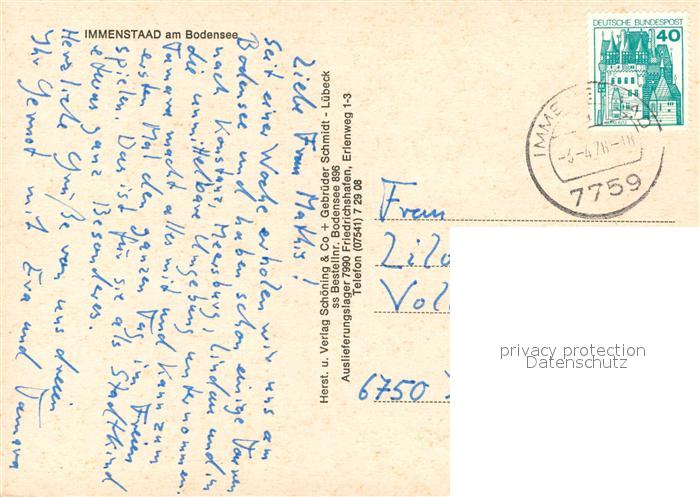 IMMENSTAAD am Bodensee
DEUTSCHE BUNDESPOST
40
-3-4.78-18
7759
Liebe Frau Mathis!
Seit einer Woche erholen wir uns am
Bodensee und haben schon einige Touren
nach Konstanz, Meersburg, Lindau und in
die unmittelbare Umgebung unternommen.
macht alles mit und kann zum
ersten Mal den ganzen Tag im Freien
spielen. Das ist für sie als Stadtkind
etwas ganz Besonderes.
Herzliche Grüße von uns dreien
Ihr Gernot mit Eva und
Herst. u. Verlag Schöning & Co + Gebrüder Schmidt - Lübeck
ss Bestellnr. Bodensee 896
Auslieferungslager 7990 Friedrichshafen, Erlenweg 1-3
Telefon (07541) 7 29 08
Frau
6750
privacy protection
Datenschutz